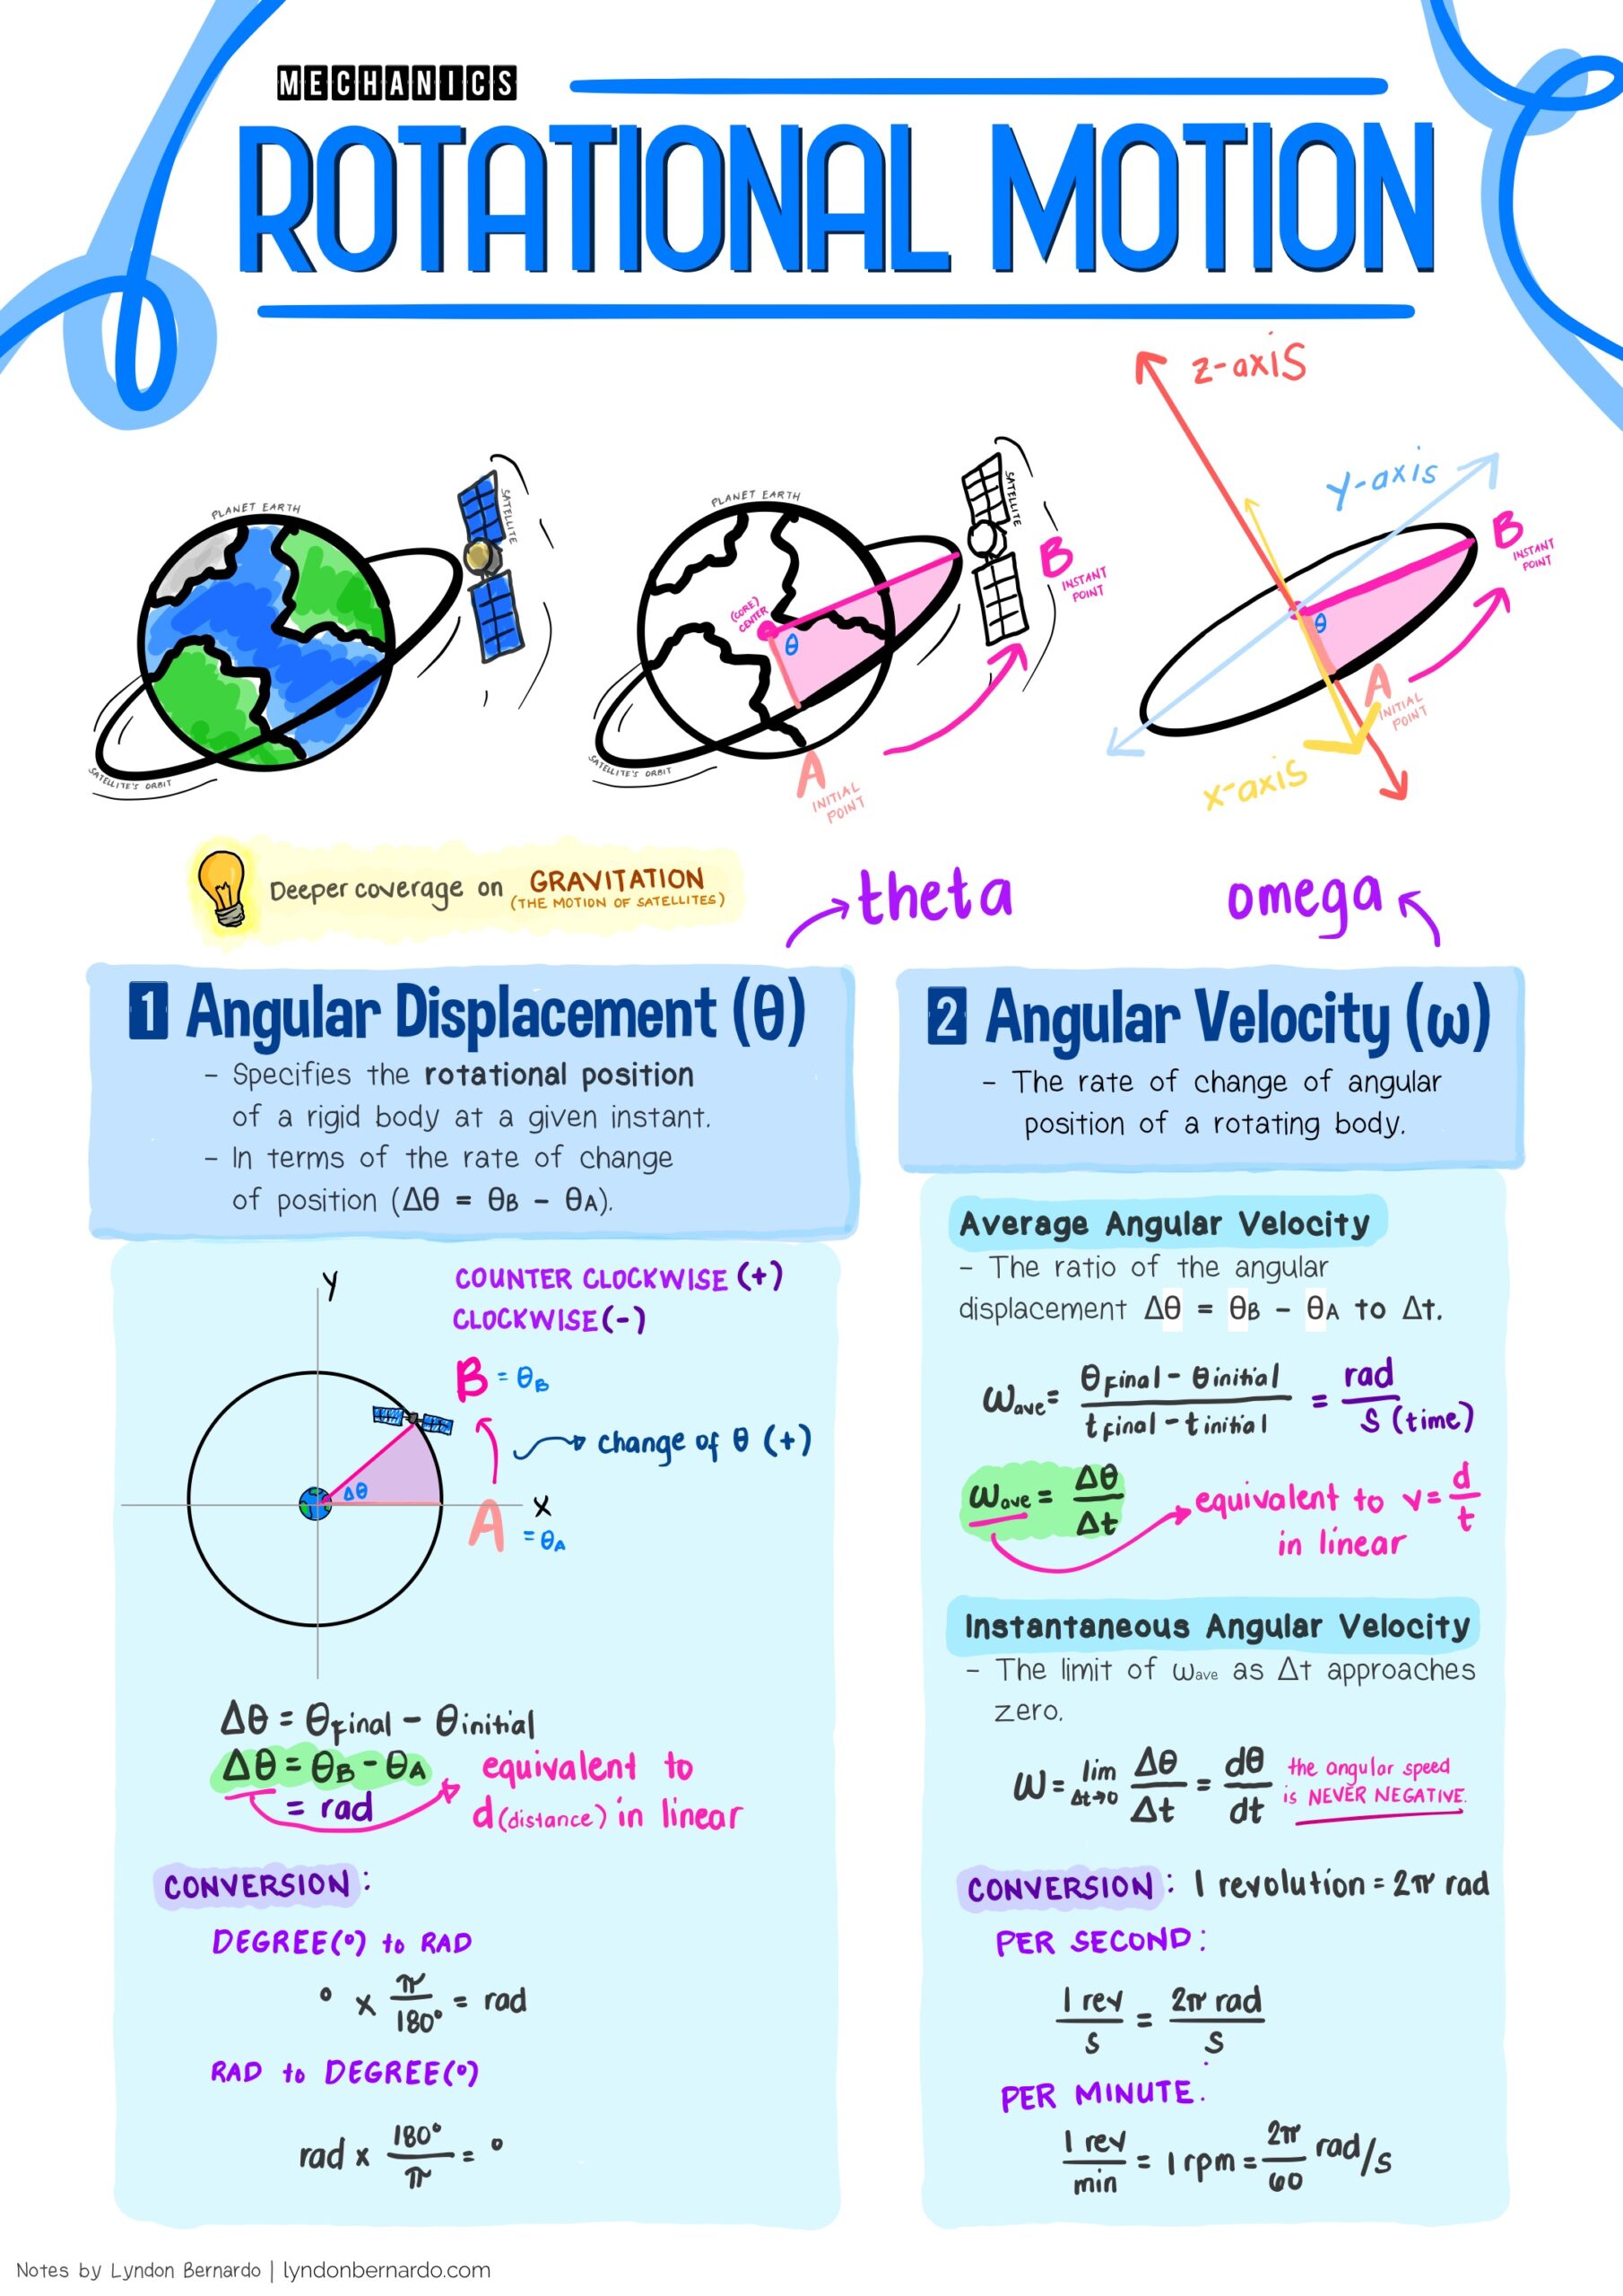 MECHANICS
ROTATIONAL MOTION
PLANET EARTH
SATELLITE
SATELLITE'S ORBIT
PLANET EARTH
SATELLITE
(CORE)
CENTER
θ
B
INSTANT
POINT
A
INITIAL
POINT
SATELLITE'S ORBIT
z-axis
y-axis
B
INSTANT
POINT
θ
A
INITIAL
POINT
x-axis
Deeper coverage on GRAVITATION
(THE MOTION OF SATELLITES)
theta
omega
1 Angular Displacement (θ)
- Specifies the rotational position
of a rigid body at a given instant.
- In terms of the rate of change
of position (Δθ = θB - θA).
y
COUNTER CLOCKWISE (+)
CLOCKWISE (-)
B = θB
change of θ (+)
Δθ
x
A = θA
Δθ = θfinal - θinitial
Δθ = θB - θA
= rad
equivalent to
d (distance) in linear
CONVERSION:
DEGREE(°) to RAD
° x π/180° = rad
RAD to DEGREE(°)
rad x 180°/π = °
2 Angular Velocity (ω)
- The rate of change of angular
position of a rotating body.
Average Angular Velocity
- The ratio of the angular
displacement Δθ = θB - θA to Δt.
ωave = θfinal - θinitial / tfinal - tinitial = rad / s (time)
ωave = Δθ/Δt
equivalent to v = d/t
in linear
Instantaneous Angular Velocity
- The limit of ωave as Δt approaches
zero.
ω = lim Δt→0 Δθ/Δt = dθ/dt
the angular speed
is NEVER NEGATIVE.
CONVERSION: 1 revolution = 2π rad
PER SECOND:
1 rev/s = 2π rad/s
PER MINUTE:
1 rev/min = 1 rpm = 2π/60 rad/s
Notes by Lyndon Bernardo | lyndonbernardo.com